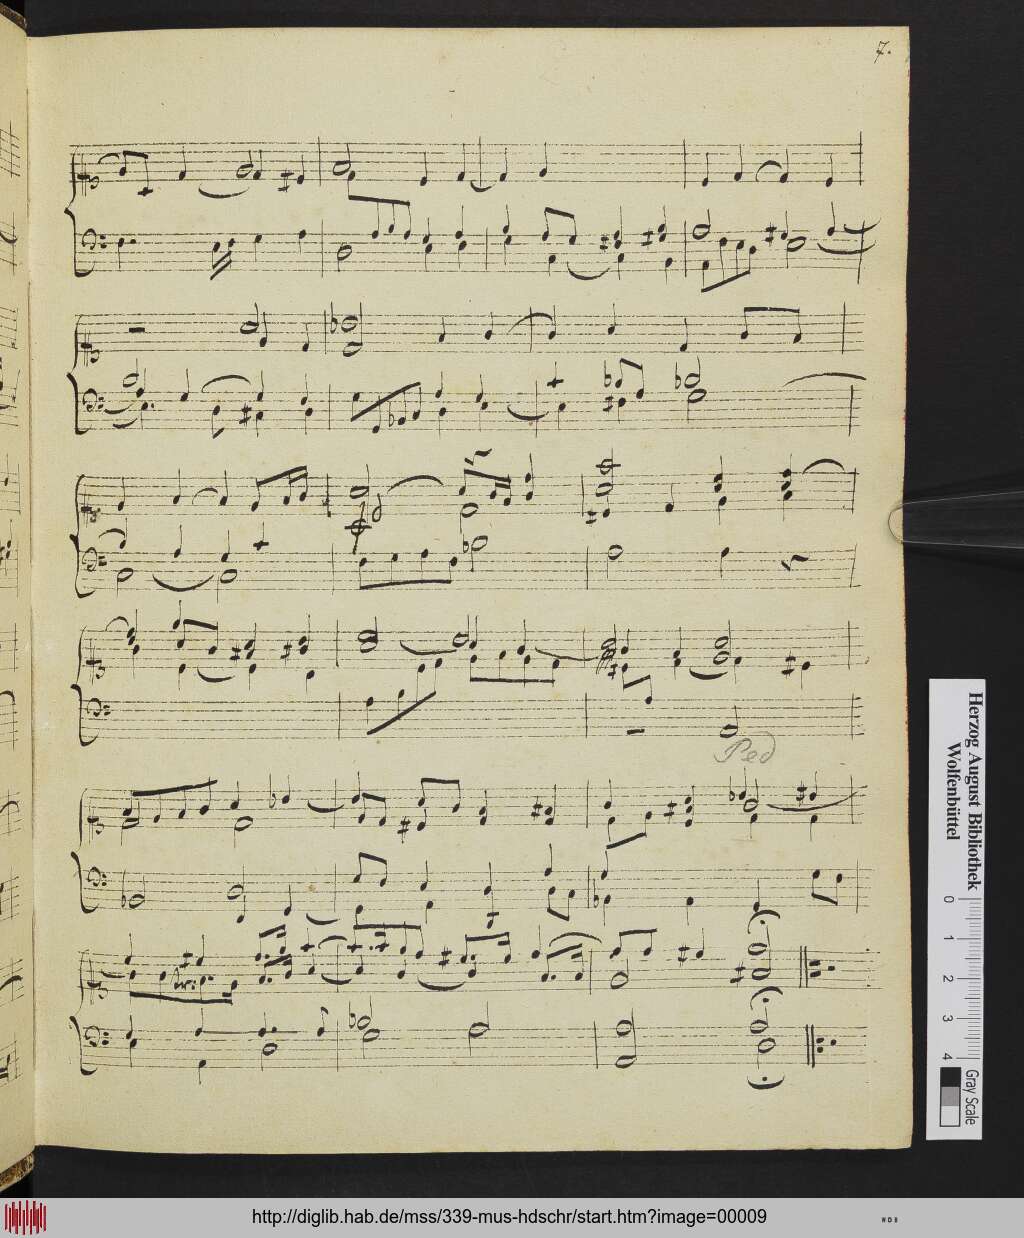 7.
Ped
Herzog August Bibliothek
Wolfenbüttel
0 1 2 3 4
Gray Scale
http://diglib.hab.de/mss/339-mus-hdschr/start.htm?image=00009